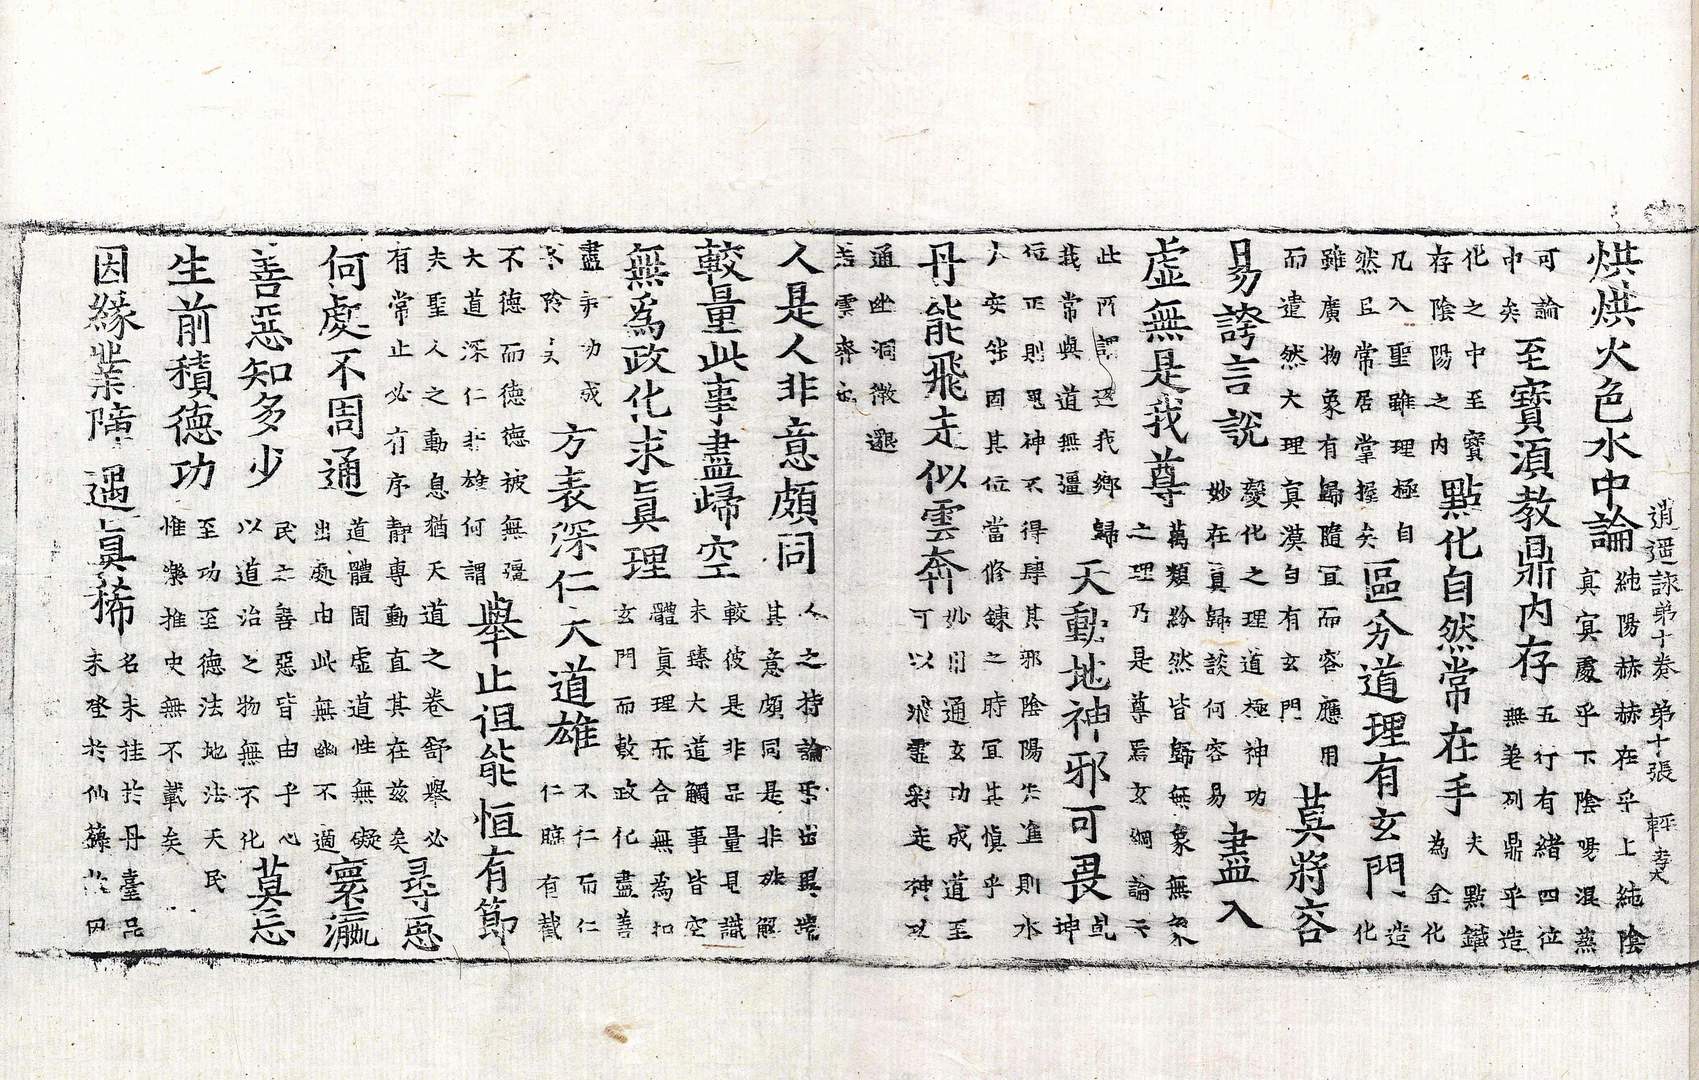 逍遥詠第十卷 第十張
烘烘火色水中論純陽赫赫在乎上純陰真寔處乎下陰陽混蒸
可論中矣至寶須教鼎內存五行有緒四位無差列鼎乎造
化之中至寶存陰陽之內點化自然常在手夫點鐵為金化
凡入聖雖理極自然且常居掌握矣區分道理有玄門造化
雖廣物象有歸隨宜而容應用而違然大理寘漠自有玄門莫將容
易誇言說變化之理道極神功妙在真歸談何容易盡入
虛無是我尊萬類紛然皆歸無象無象之理乃是尊焉玄綱論云
此所謂返我鄉歸我常與道無疆天動地神邪可畏乾坤
位正則鬼神不得肆其邪陰陽失進則水火安能固其位當修鍊之時宜其慎乎
丹能飛走似雲奔妙用通玄功成道至可以飛靈聚走神以
通幽洞微還若雲奔也
人是人非意頗同人之持論焉出異端其意頗同是非難解
較量此事盡歸空較彼是非品量見識未臻大道觸事皆空
無為政化求眞理體眞理而合無為扣玄門而敷政化盡善
盡美功成不矜文方表深仁大道雄不仁而仁仁臨有截
不德而德德被無疆大道深仁非雄何謂舉止但能恒有節
夫聖人之動息猶天道之卷舒舉必有常止必有序靜專動直其在茲矣尋思
何處不周通道體周虛道性無礙出處由此無幽不適寰瀛
善惡知多少民之善惡皆由乎心以道治之物無不化莫忘
生前積德功至功至德法地法天民惟樂推史無不載矣
因緣業障遇眞稀名未挂於丹臺品未登於仙籙